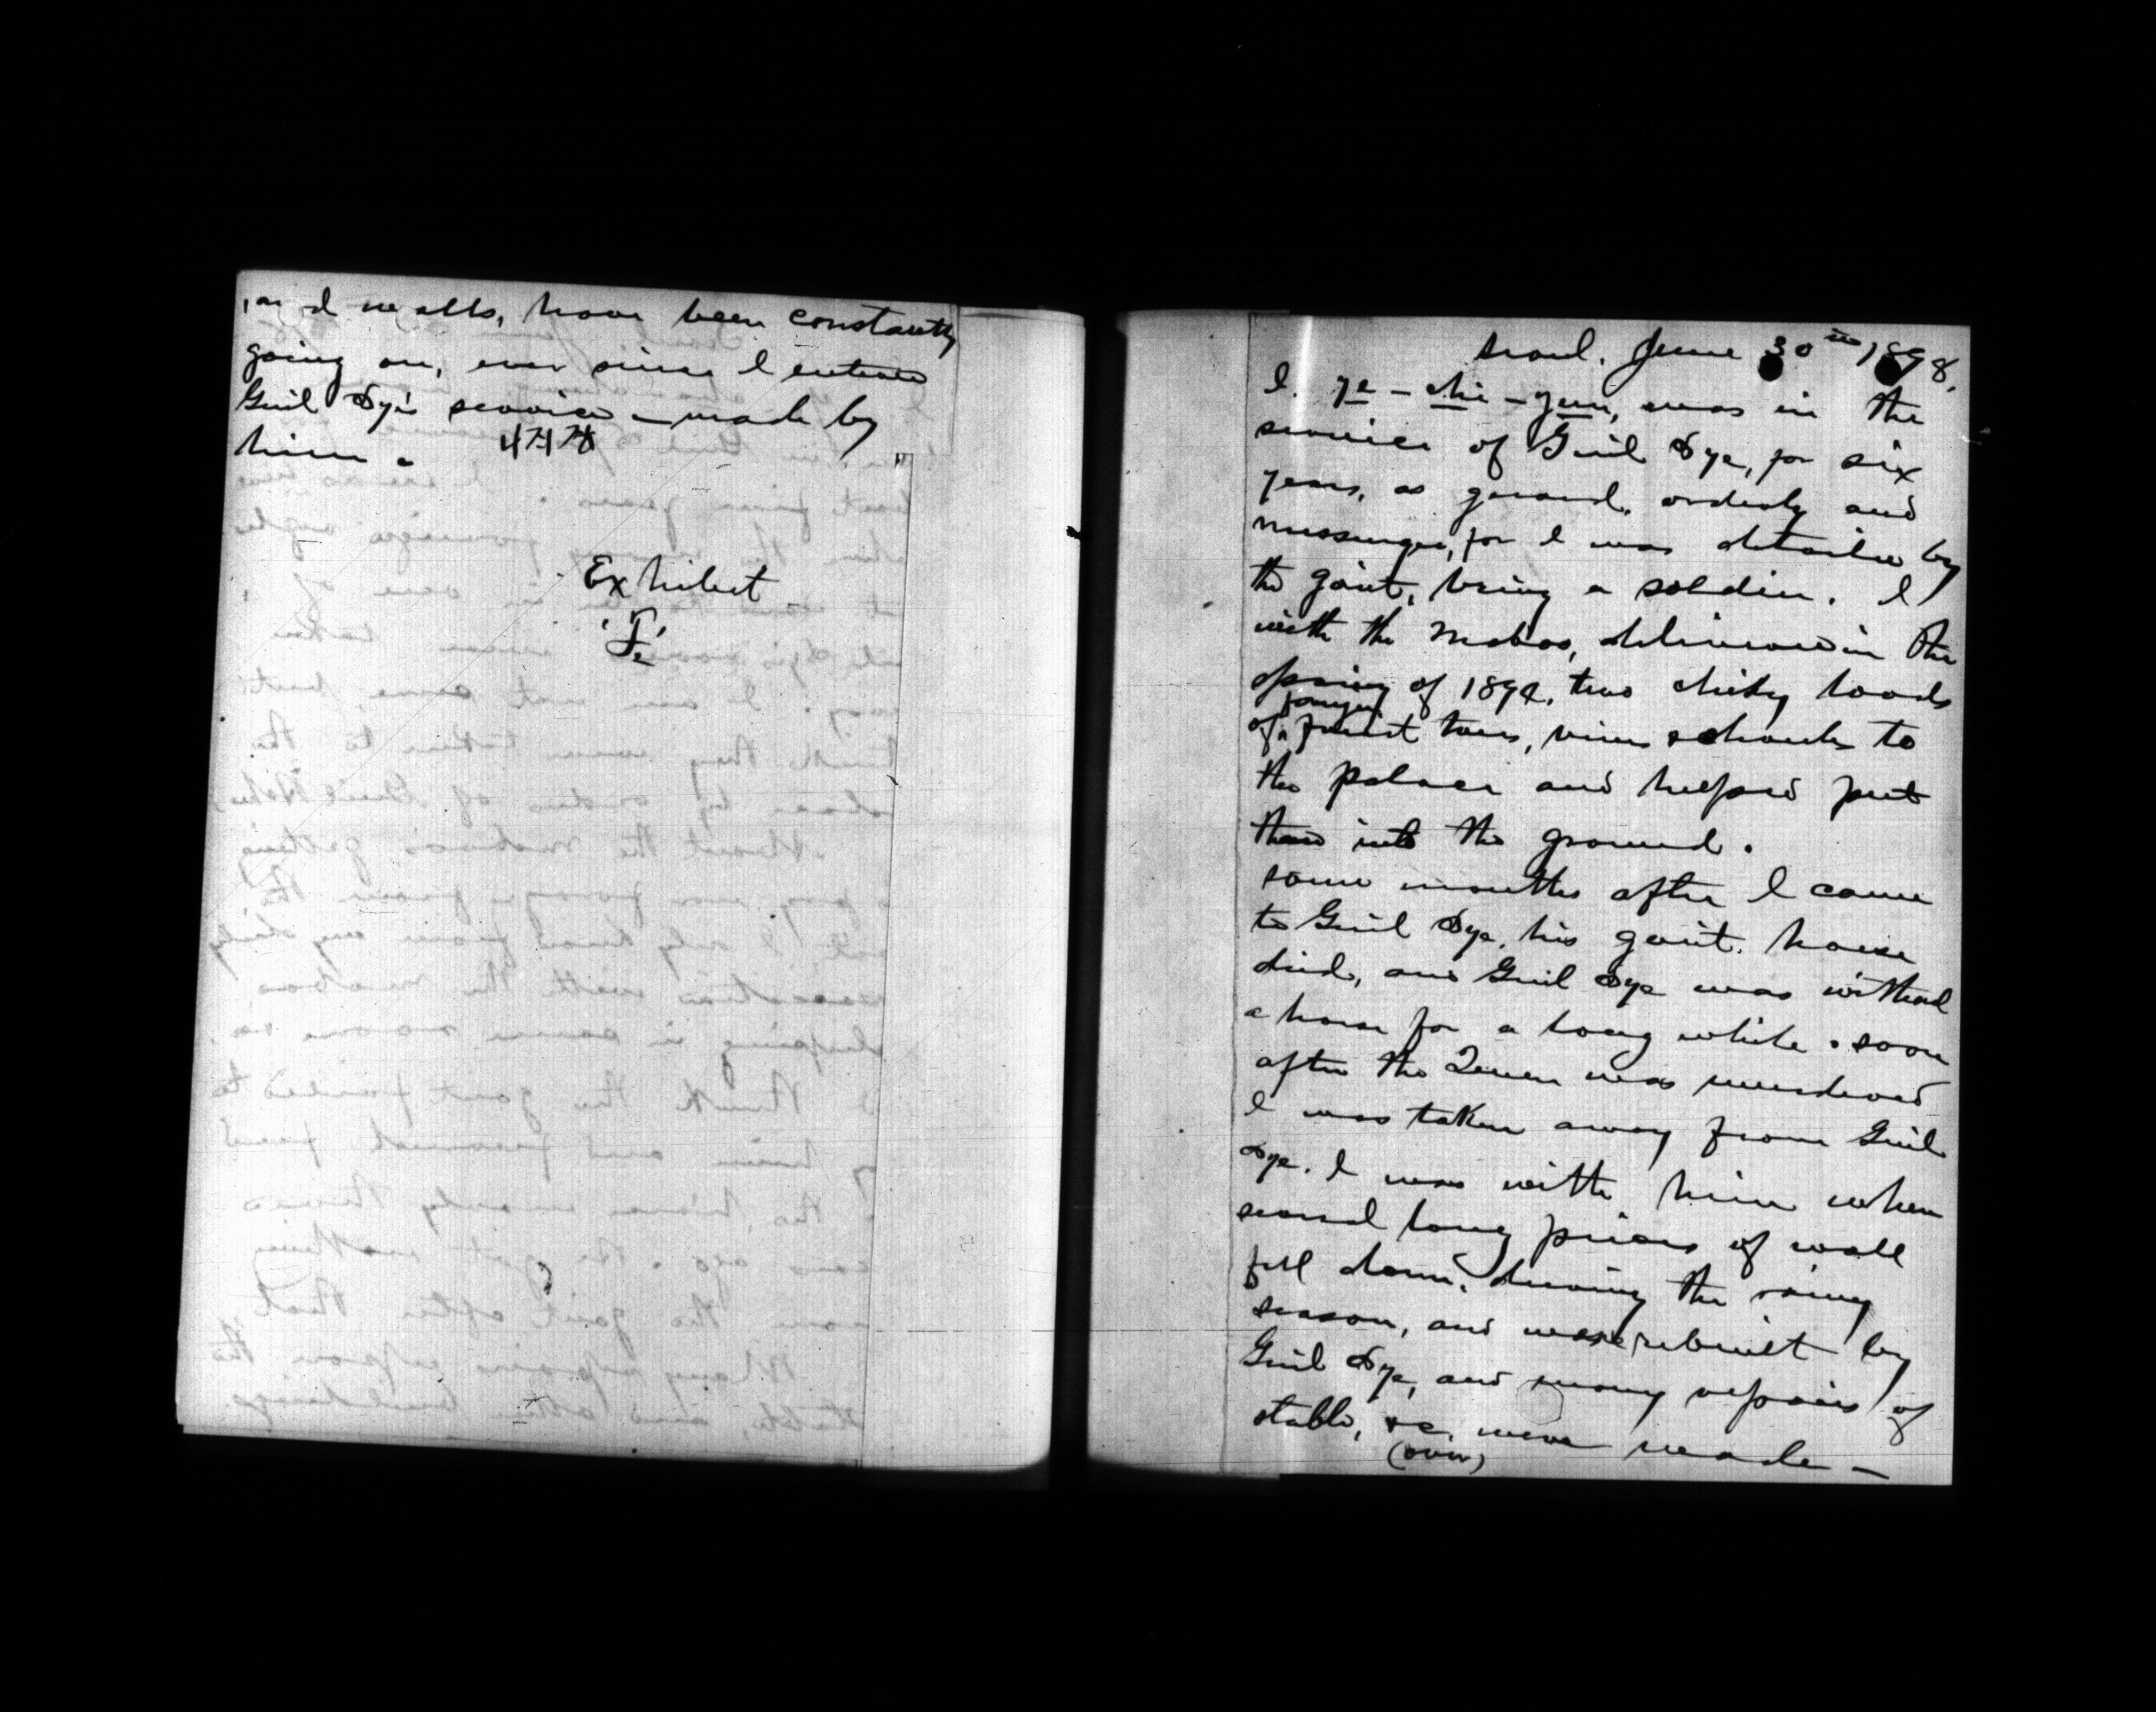 and walls, have been constantly
going on, ever since I entered
Genl Dye's service - made by
him.
Exhibit
Seoul. June 30th 1898.
I. Ye-chi-gun, was in the
service of Genl Dye, for six
years, as guard, orderly and
messenger, for I was detailed by
the govt, being a soldier. I
with the Mabos, delivered in the
spring of 1894, two chiky loads
of foreign fruit trees, vines & shrubs to
the palace and helped put
them into the ground.
Some months after I came
to Genl Dye, his govt. horse
died, and Genl Dye was without
a horse for a long while. Soon
after the Queen was murdered
I was taken away from Genl
Dye. I was with him when
several long pieces of wall
fell down, during the rainy
season, and were rebuilt by
Genl Dye, and many repairs of
stable, &c. were made -
(over)